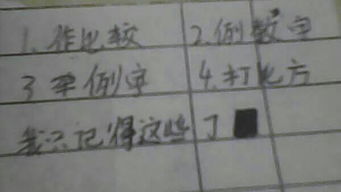 1.作比较 2.例数字
3 举例字 4.打比方
我只记得这些了